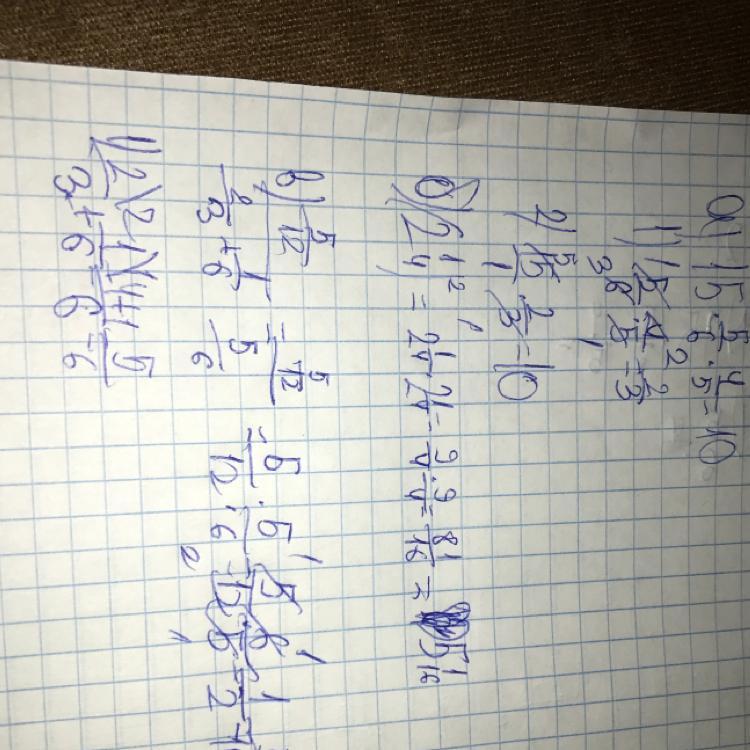 а) 15 · 5/6 · 4/5 = 10
1) 5/6 · 4/5 = 2/3
2) 15 · 2/3 = 10
б) (2 1/4)² = 2 1/4 · 2 1/4 = 9/4 · 9/4 = 81/16 = 5 1/16
в) 5/12 / (2/3 + 1/6) = 5/12 / 5/6 = 5/12 : 5/6 = 5/12 · 6/5 = 1/2
1) 2/3 + 1/6 = (4+1)/6 = 5/6